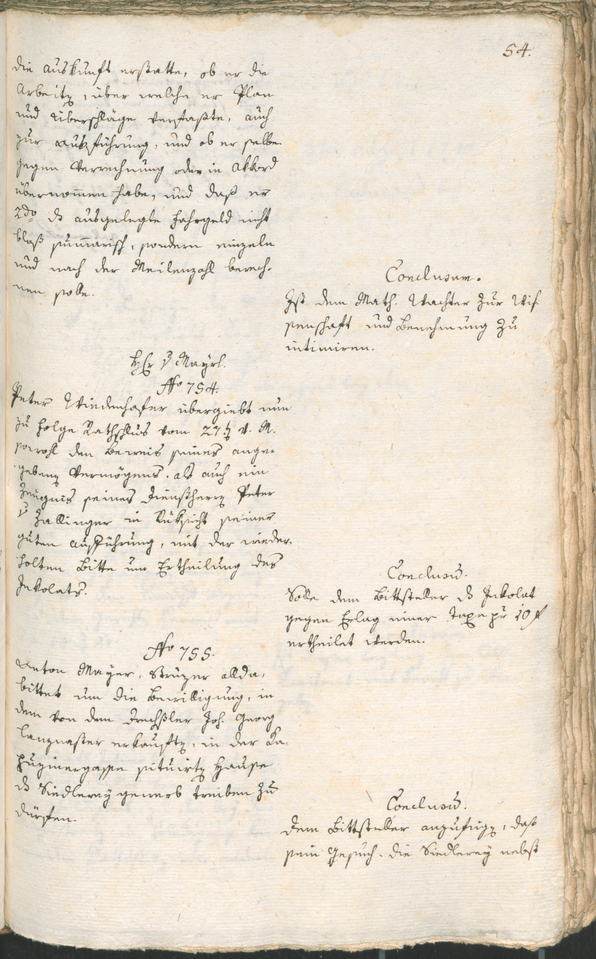 54.
die Auskunft erstatte, ob er die
Arbeit, über welche er Plan
und Überschläge verfaßte, auch
zur Ausführung, und ob er selbe
gegen Verrechnung oder in Akkord
übernommen habe, und daß er
2do ds ausgelegte Fahrgeld nicht
bloß summarisch, sondern einzeln
und nach der Meilenzahl berech-
nen solle.
Conclusum.
Ist dem Math. Wachter zur Wis
senschaft und Benehmung zu
intimiren.
v Mayrl.
No 754.
Peter Wiedenhofer übergiebt nun
zu Folge Rathschluß vom 27t v. M.
sowohl den Beweis seines ange-
gebenen Vermögens, als auch ein
Zeugnis seines Dienstherrn Peter
v Zallinger in Rüksicht seiner
guten Aufführung, mit der wieder-
holten Bitte um Ertheilung des
Inkolats.
Conclusum.
Solle dem Bittsteller ds Inkolat
gegen Erlag einer Taxe pr 10 f
ertheilet werden.
No 755.
Anton Mayer, allda,
bittet um die Bewilligung, in
dem von dem Drechsler Joh. Georg
erkauften, in der Ka-
puzinergasse situirten Hause
ds Siedlerey gewerb treiben zu
dürfen.
Conclusum.
Dem Bittsteller anzufügen, daß
sein Gesuch, die Siedlerey nebst